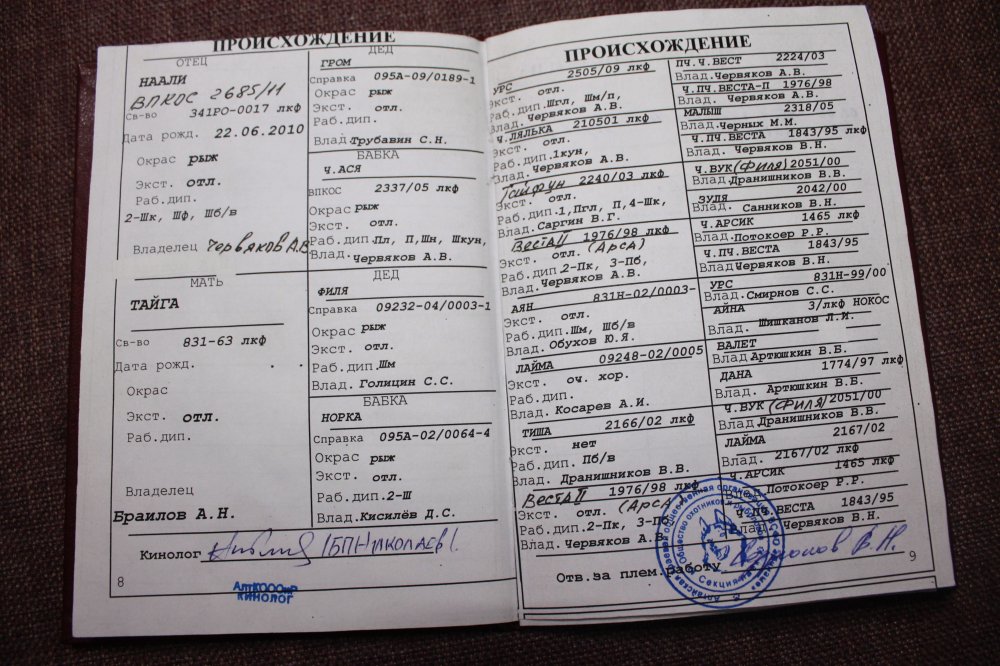 ПРОИСХОЖДЕНИЕ
ОТЕЦ
НААЛИ
ВПКОС 2685/11
Св-во 341РО-0017 лкф
Дата рожд. 22.06.2010
Окрас рыж
Экст. отл.
Раб.дип.
2-Шк, Шф, Шб/в
Владелец Червяков А.В
МАТЬ
ТАЙГА
Св-во 831-63 лкф
Дата рожд.
Окрас
Экст. отл.
Раб.дип.
Владелец
Браилов А.Н.
ДЕД
ГРОМ
Справка 095А-09/0189-1
Окрас рыж
Экст. отл.
Раб.дип.
Влад.Трубавин С.Н.
БАБКА
Ч.АСЯ
ВПКОС 2337/05 лкф
Окрас рыж
Экст. отл.
Раб.дип.Пл, П,Шн, Шкун,
Влад.Червяков А.В.
ДЕД
ФИЛЯ
Справка 09232-04/0003-1
Окрас рыж
Экст. отл.
Раб.дип.Шм
Влад. Голицин С.С.
БАБКА
НОРКА
Справка 095А-02/0064-4
Окрас рыж
Экст. отл.
Раб.дип.2-Ш
Влад.Кисилёв Д.С.
Кинолог
АлтКОООиР
КИНОЛОГ
8
ПРОИСХОЖДЕНИЕ
УРС 2505/09 лкф
Экст. отл.
Раб.дип.Шгл, Шм/п,
Влад. Червяков А.В.
Ч.ЛЯЛЬКА 210501 лкф
Экст. отл.
Раб.дип.1кун,
Влад.Червяков А.В.
Тайфун 2240/03 лкф
Экст. отл.
Раб.дип.1,Пгл, П,4-Шк,
Влад.Саргин В.Г.
ВЕСТАII 1976/98 лкф
Экст. отл. (АрсА)
Раб.дип.2-Пк, 3-Пб,
Влад.Червяков А.В.
АЯН 831Н-02/0003-
Экст. отл.
Раб.дип.Шм, Шб/в
Влад.Обухов Ю.Я.
ЛАЙМА 09248-02/0005
Экст. оч. хор.
Раб.дип.
Влад. Косарев А.И.
ТИША 2166/02 лкф
Экст. нет
Раб.дип. Пб/в
Влад. Дранишников В.В.
ВЕСТАII 1976/98 лкф
Экст. отл. (АрсА)
Раб.дип.2-Пк, 3-Пб
Влад. Червяков А.В.
ПЧ.Ч.ВЕСТ 2224/03
Влад.Червяков А.В.
Ч.ПЧ.ВЕСТА-П 1976/98
Влад. Червяков А.В.
МАЛЫШ 2318/05
Влад.Черных М.М.
Ч.ПЧ.ВЕСТА 1843/95 лкф
Влад. Червяков В.Н.
Ч.ВУК (Филя) 2051/00
Влад.Дранишников В.В.
ЗУЛЯ 2042/00
Влад. Санников В.Н.
Ч.АРСИК 1465 лкф
Влад.Потокоер Р.Р.
Ч.ПЧ.ВЕСТА 1843/95
Влад.Червяков В.Н.
УРС 831Н-99/00
Влад.Смирнов С.С.
АЙНА 3/лкф НОКОС
Влад. Шишканов Л.И.
ВАЛЕТ
Влад Артюшкин В.Б.
ДАНА 1774/97 лкф
Влад. Артюшкин В.Б.
Ч.ВУК (Филя) 2051/00
Влад Дранишников В.В.
ЛАЙМА 2167/02
Влад. 2167/02 лкф
Ч.АРСИК 1465 лкф
Влад. Потокоер Р.Р.
Ч.ПЧ.ВЕСТА 1843/95
Влад.Червяков В.Н.
Отв.за плем.работу
9